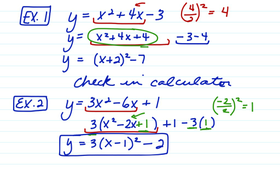 EX. 1 y = x² + 4x - 3 (4/2)² = 4
y = x² + 4x + 4 - 3 - 4
y = (x+2)² - 7
check in calculator
EX. 2 y = 3x² - 6x + 1 (-2/2)² = 1
3(x² - 2x + 1) + 1 - 3(1)
y = 3(x-1)² - 2